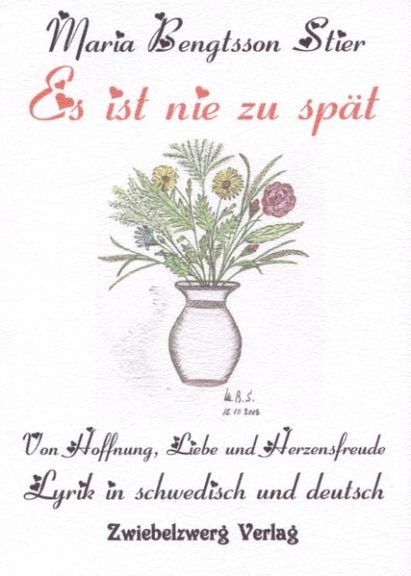 Maria Bengtsson Stier
Es ist nie zu spät
M.B.S.
15.10.2006
Von Hoffnung, Liebe und Herzensfreude
Lyrik in schwedisch und deutsch
Zwiebelzwerg Verlag